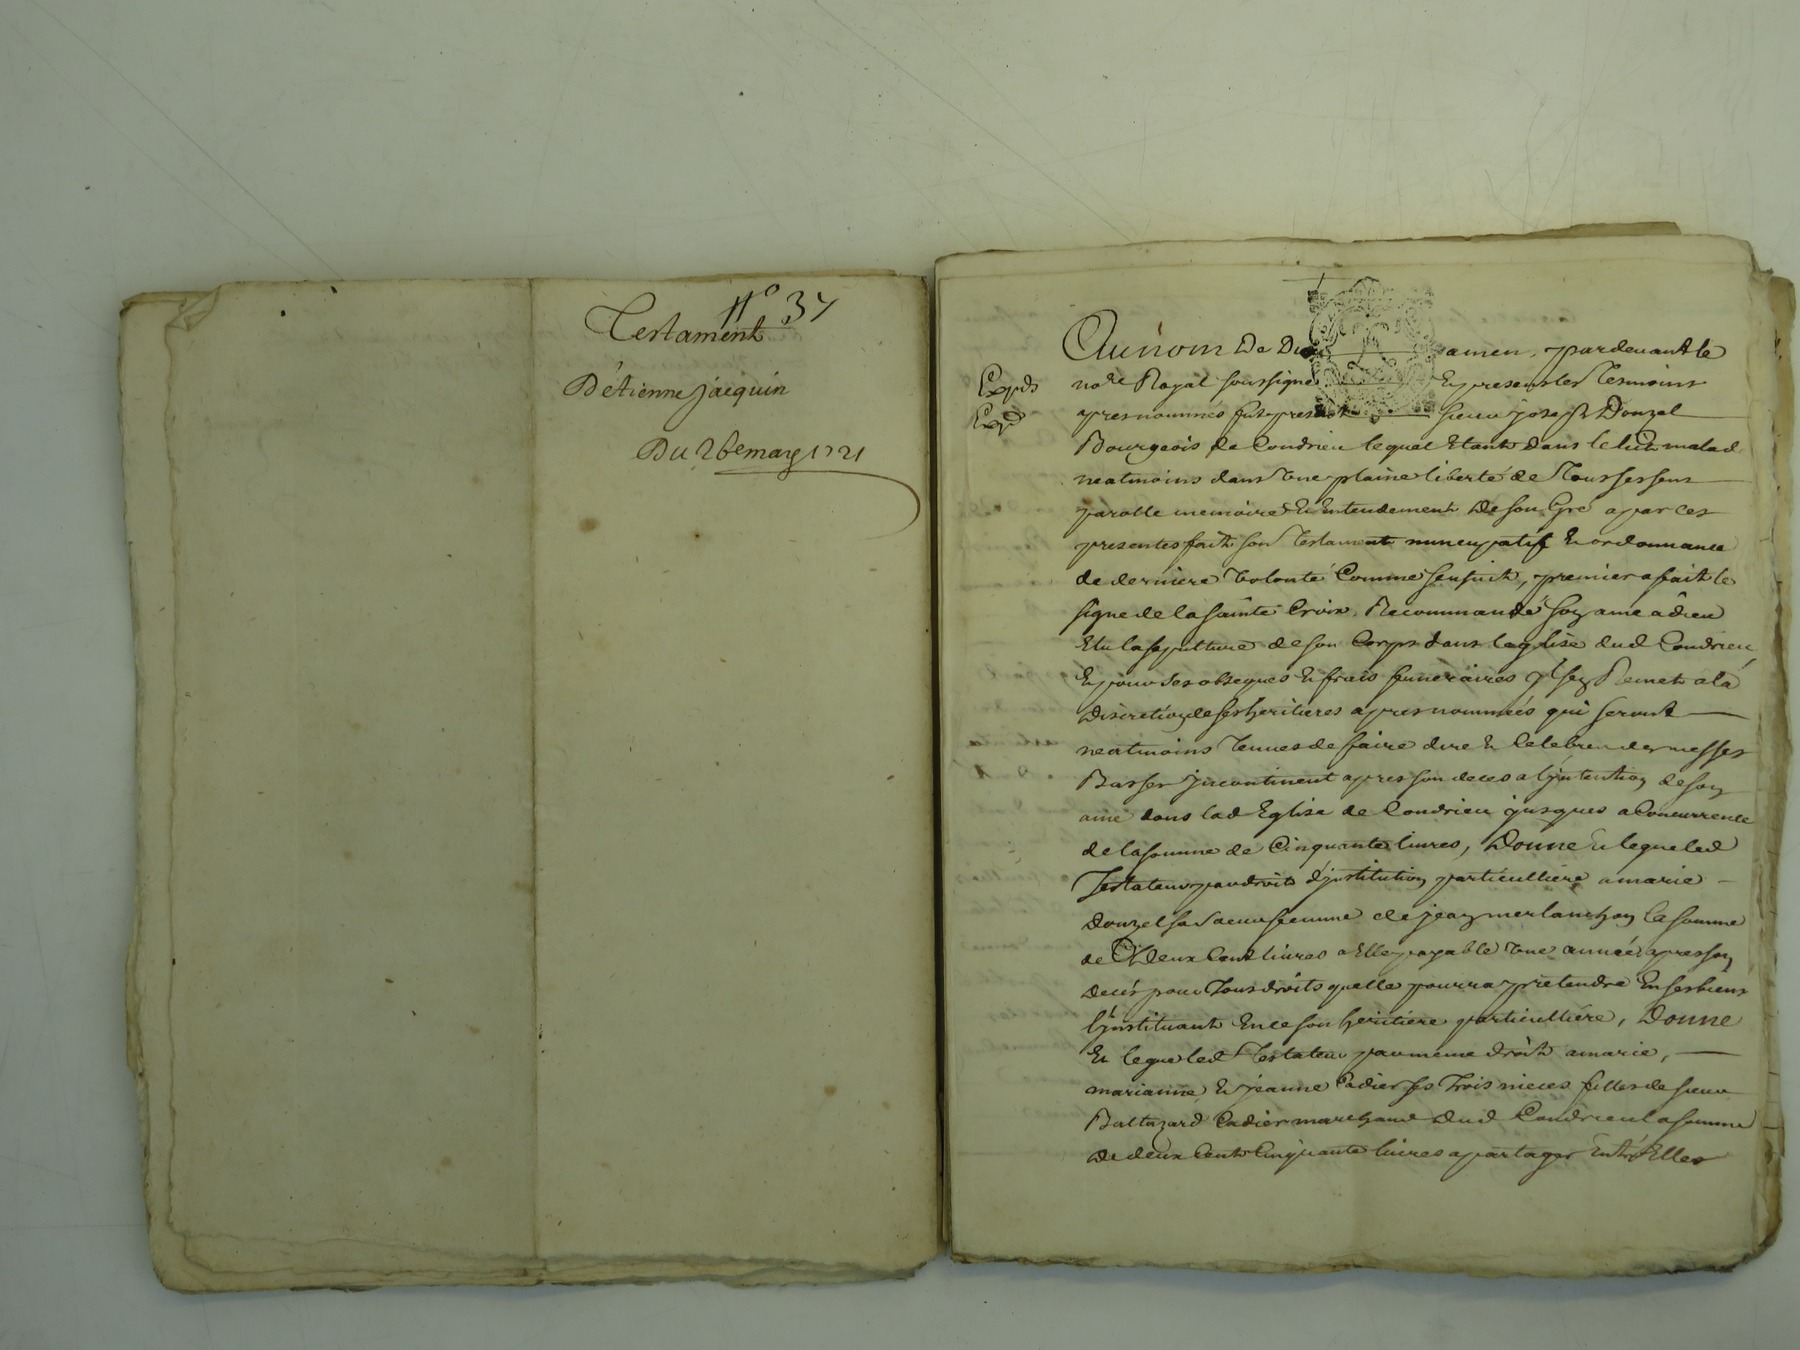 N.o 37
Testament
D'Etienne jacquin
Du 26e mars 1721
Expds
Expd
Au nom De Dieu amen, pardevant le
no.re Royal soussigne Et presens les Tesmoins
apres nommés fut present sieur joseph Donzel
Bourgeois de Condrieu lequel Etant dans le lict malade
neatmoins dans Une plaine liberté de Tous ses sens
parolle memoire Et Entendement De son Gré a par ces
presentes fait son Testament nuncupatif Et ordonnance
de derniere Volonté Comme sensuit, premier a fait le
signe de la sainte Croix, Recommandé son ame a dieu
Elu la sepulture de son Corps dans leglise dud Condrieu,
Et pour ses obseques Et frais funeraires Il sen Remet a la
Discretion de ses heritieres apres nommées qui seront
neatmoins Tenues de faire dire Et Celebrer des messes
Basses jncontinent apres son deces a l'jntention de son
ame dans lad Eglise de Condrieu jusques a Concurrence
de la somme de Cinquante livres, Donne Et legue led
Testateur par droit d'jnstitution particulliere a marie
Donzel sa saeur femme de jean merlanchon la somme
de Deux Cent livres a Elle payable Une année apres son
Decés pour Tous droits quelle pourra pretendre En ses biens
l'jnstituant En ce son heritiere particulliere, Donne
Et legue led Testateur par meme droit a marie,
marianne Et jeanne Cadier ses Trois nieces filles de sieur
Baltazard Cadier marchand dud Condrieu la somme
De deux Cent Cinquante livres a partager Entre Elles